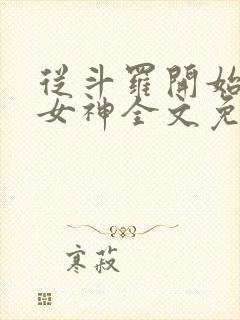 從斗羅開始
女神全文免
寒菽